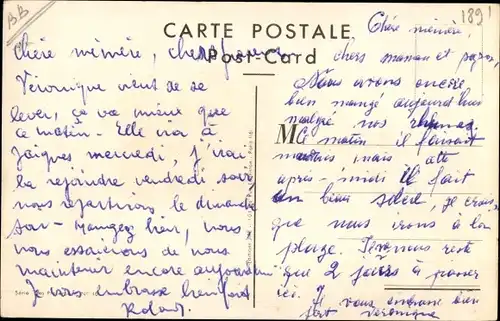 BB
1891
CARTE POSTALE
Post-Card
Chère mémère, chers parents,
Véronique vient de se
lever, ça va mieux que
ce matin - Elle ira à
mercredi, j'irai
la rejoindre vendredi soir
nous repartirons le dimanche
soir - Mangez bien, nous
nous essaierons de nous
maintenir encore aujourd'hui
Je vous embrasse bien fort
Roland.
Chère mémère,
chers maman et papa,
Nous avons encore
bien mangé aujourd'hui
malgré nos rhumes
M
Ce matin il faisait
mauvais mais cette
après-midi il fait
un beau soleil, je crois
que nous irons à la
plage. Il nous reste
que 2 jours à passer
ici.
Je vous embrasse bien
fort Véronique